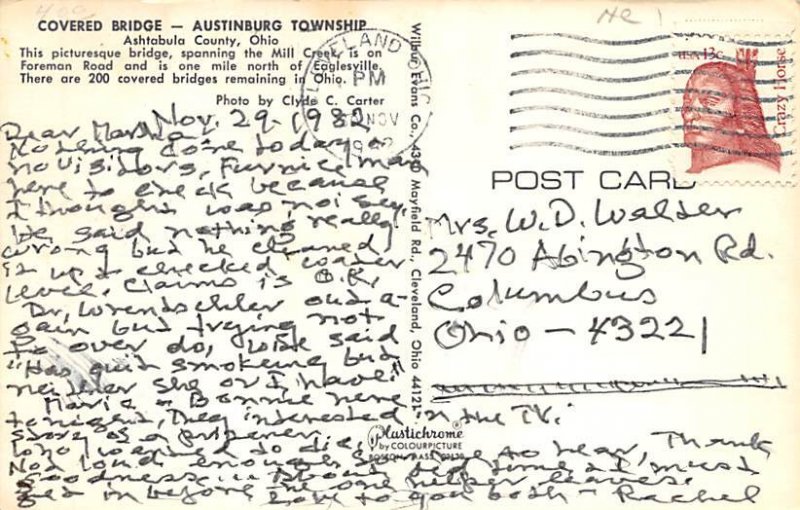 COVERED BRIDGE — AUSTINBURG TOWNSHIP
Ashtabula County, Ohio
This picturesque bridge, spanning the Mill Creek, is on
Foreman Road and is one mile north of Eaglesville.
There are 200 covered bridges remaining in Ohio.
Photo by Clyde C. Carter
Nov. 29-1982
Dear Martha
Nothing done today
no visitors, Furnice man
here to check because
I thought was noisey
he said nothing really
wrong but he cleaned
it up & checked water
level. Claims is O.K.
Dr. out a-
gain but trying not
to over do, wife said
"Has quit smoking but
neither she or I have"
Maria + Bonnie here
tonight, They interested in the TV.
story of a prisoner
who wanted to die,
Not loud enough for me to hear, Thank
Goodness. About bed time & I must
get in before the one helper leaves
Love to you both - Rachel
Wilbur Evans Co., 4340 Mayfield Rd., Cleveland, Ohio 44121
CLEVELAND, OHIO
PM
NOV
USA 13c
Crazy Horse
POST CARD
Mrs. W.D. Walder
2470 Abington Rd.
Columbus
Ohio - 43221
Plastichrome
by COLOURPICTURE
BOSTON, MASS. 02130